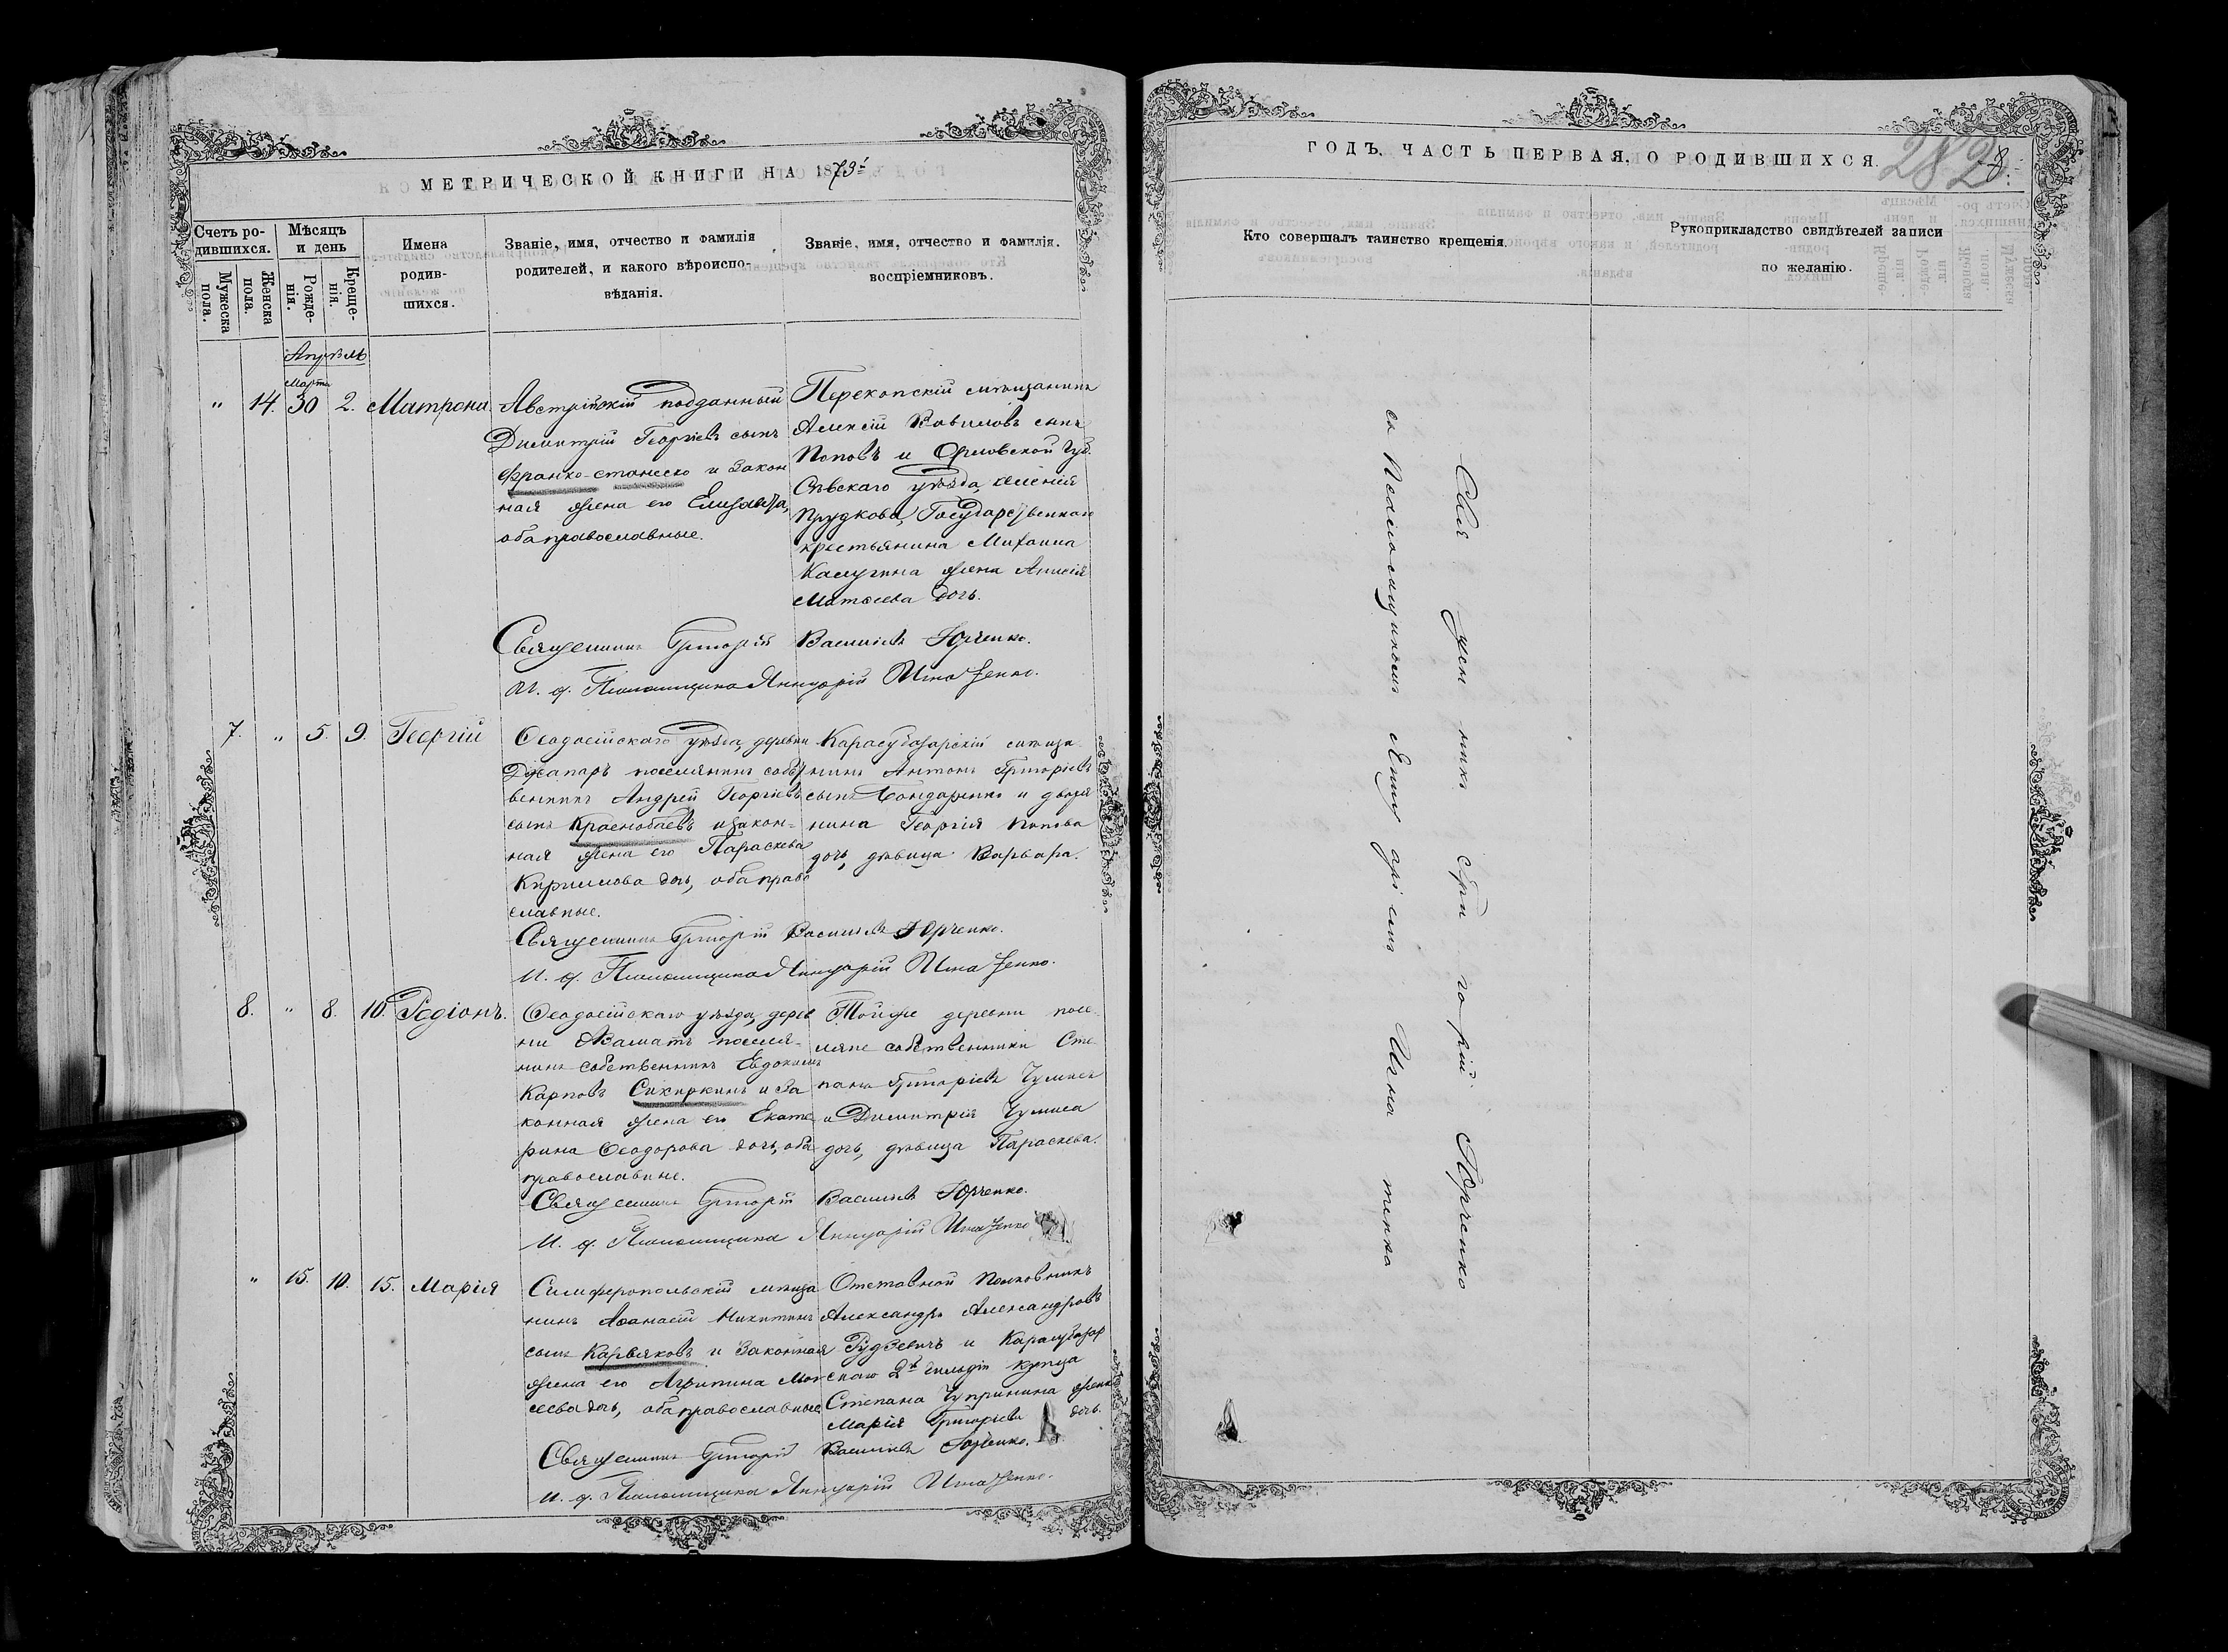 МЕТРИЧЕСКОЙ КНИГИ НА 1873й
Счетъ ро-
дившихся.
Мужеска
пола.
Женска
пола.
Мѣсяцъ
и день
Рожде-
нія.
Креще-
нія.
Имена
родив-
шихся.
Званіе, имя, отчество и фамилія
родителей, и какого вѣроиспо-
вѣданія.
Званіе, имя, отчество и фамилія.
воспріемниковъ.
Апрѣль
Марта
" 14. 30 2. Матрона
Австрійскій подданный
Димитрій Георгіевъ сынъ
Франко-станеско и закон
ная жена его Елизавета,
оба православные.
Перекопскій мѣщанинъ
Алексій Вавиловъ сынъ
Поповъ и Орловской Губ.
Сѣвскаго уѣзда, селенія
Прудкова, Государственнаго
крестьянина Михаила
Калугина жена Анисія
Матѳеева дочь.
Священникъ Григорій Васильевъ Юрченко.
И. д. Псаломщика Яннуарій Игнатенко.
7. " 5. 9. Георгій
Ѳеодосійскаго уѣзда, деревни
Джапаръ поселянинъ собст
венникъ Андрей Георгіевъ
сынъ Краснобаевъ и закон=
ная жена его Параскева
Кириллова дочь, оба право
славные.
Карасубазарскій мѣща
нинъ Антонъ Григорьевъ
сынъ Бондаренко и дворя
нина Георгія Попова
дочь, дѣвица Варвара.
Священникъ Григорій Васильевъ Юрченко.
И. д. Псаломщика Яннуарій Игнатенко.
8. " 8. 10. Родіонъ.
Ѳеодосійскаго уѣзда, дерев
ни Азаматъ поселя-
нинъ собственникъ Евдокимъ
Карповъ Сикиркинъ и за
конная жена его Екате
рина Ѳеодорова дочь, оба
православные.
Той же деревни посе
ляне собственники Сте
панъ Григорьевъ Чумаса
и Димитрія Чумаса
дочь, дѣвица Параскева.
Священникъ Григорій Васильевъ Юрченко.
И. д. Псаломщика Яннуарій Игнатенко
" 15. 10. 15. Марія
Симферопольскій мѣща
нинъ Аѳанасій Никитинъ
сынъ Карвяковъ и законная
жена его Агрипина Мои
сеева дочь, оба православные
Отставной Полковникъ
Александръ Александровъ
Рудзевичъ и Карасубазар
скаго 2й гильдіи купца
Степана Чупринина жена
Марія Григорьева дочь.
Священникъ Григорій Васильевъ Юрченко.
И. д. Псаломщика Яннуарій Игнатенко.
ГОДЪ, ЧАСТЬ ПЕРВАЯ, О РОДИВШИХСЯ.
282
8.
Кто совершалъ таинство крещенія.
Рукоприкладство свидѣтелей записи
по желанію.
Священникъ Григорій Юрченко
съ Псаломщикомъ Яннуаріемъ Игнатенко